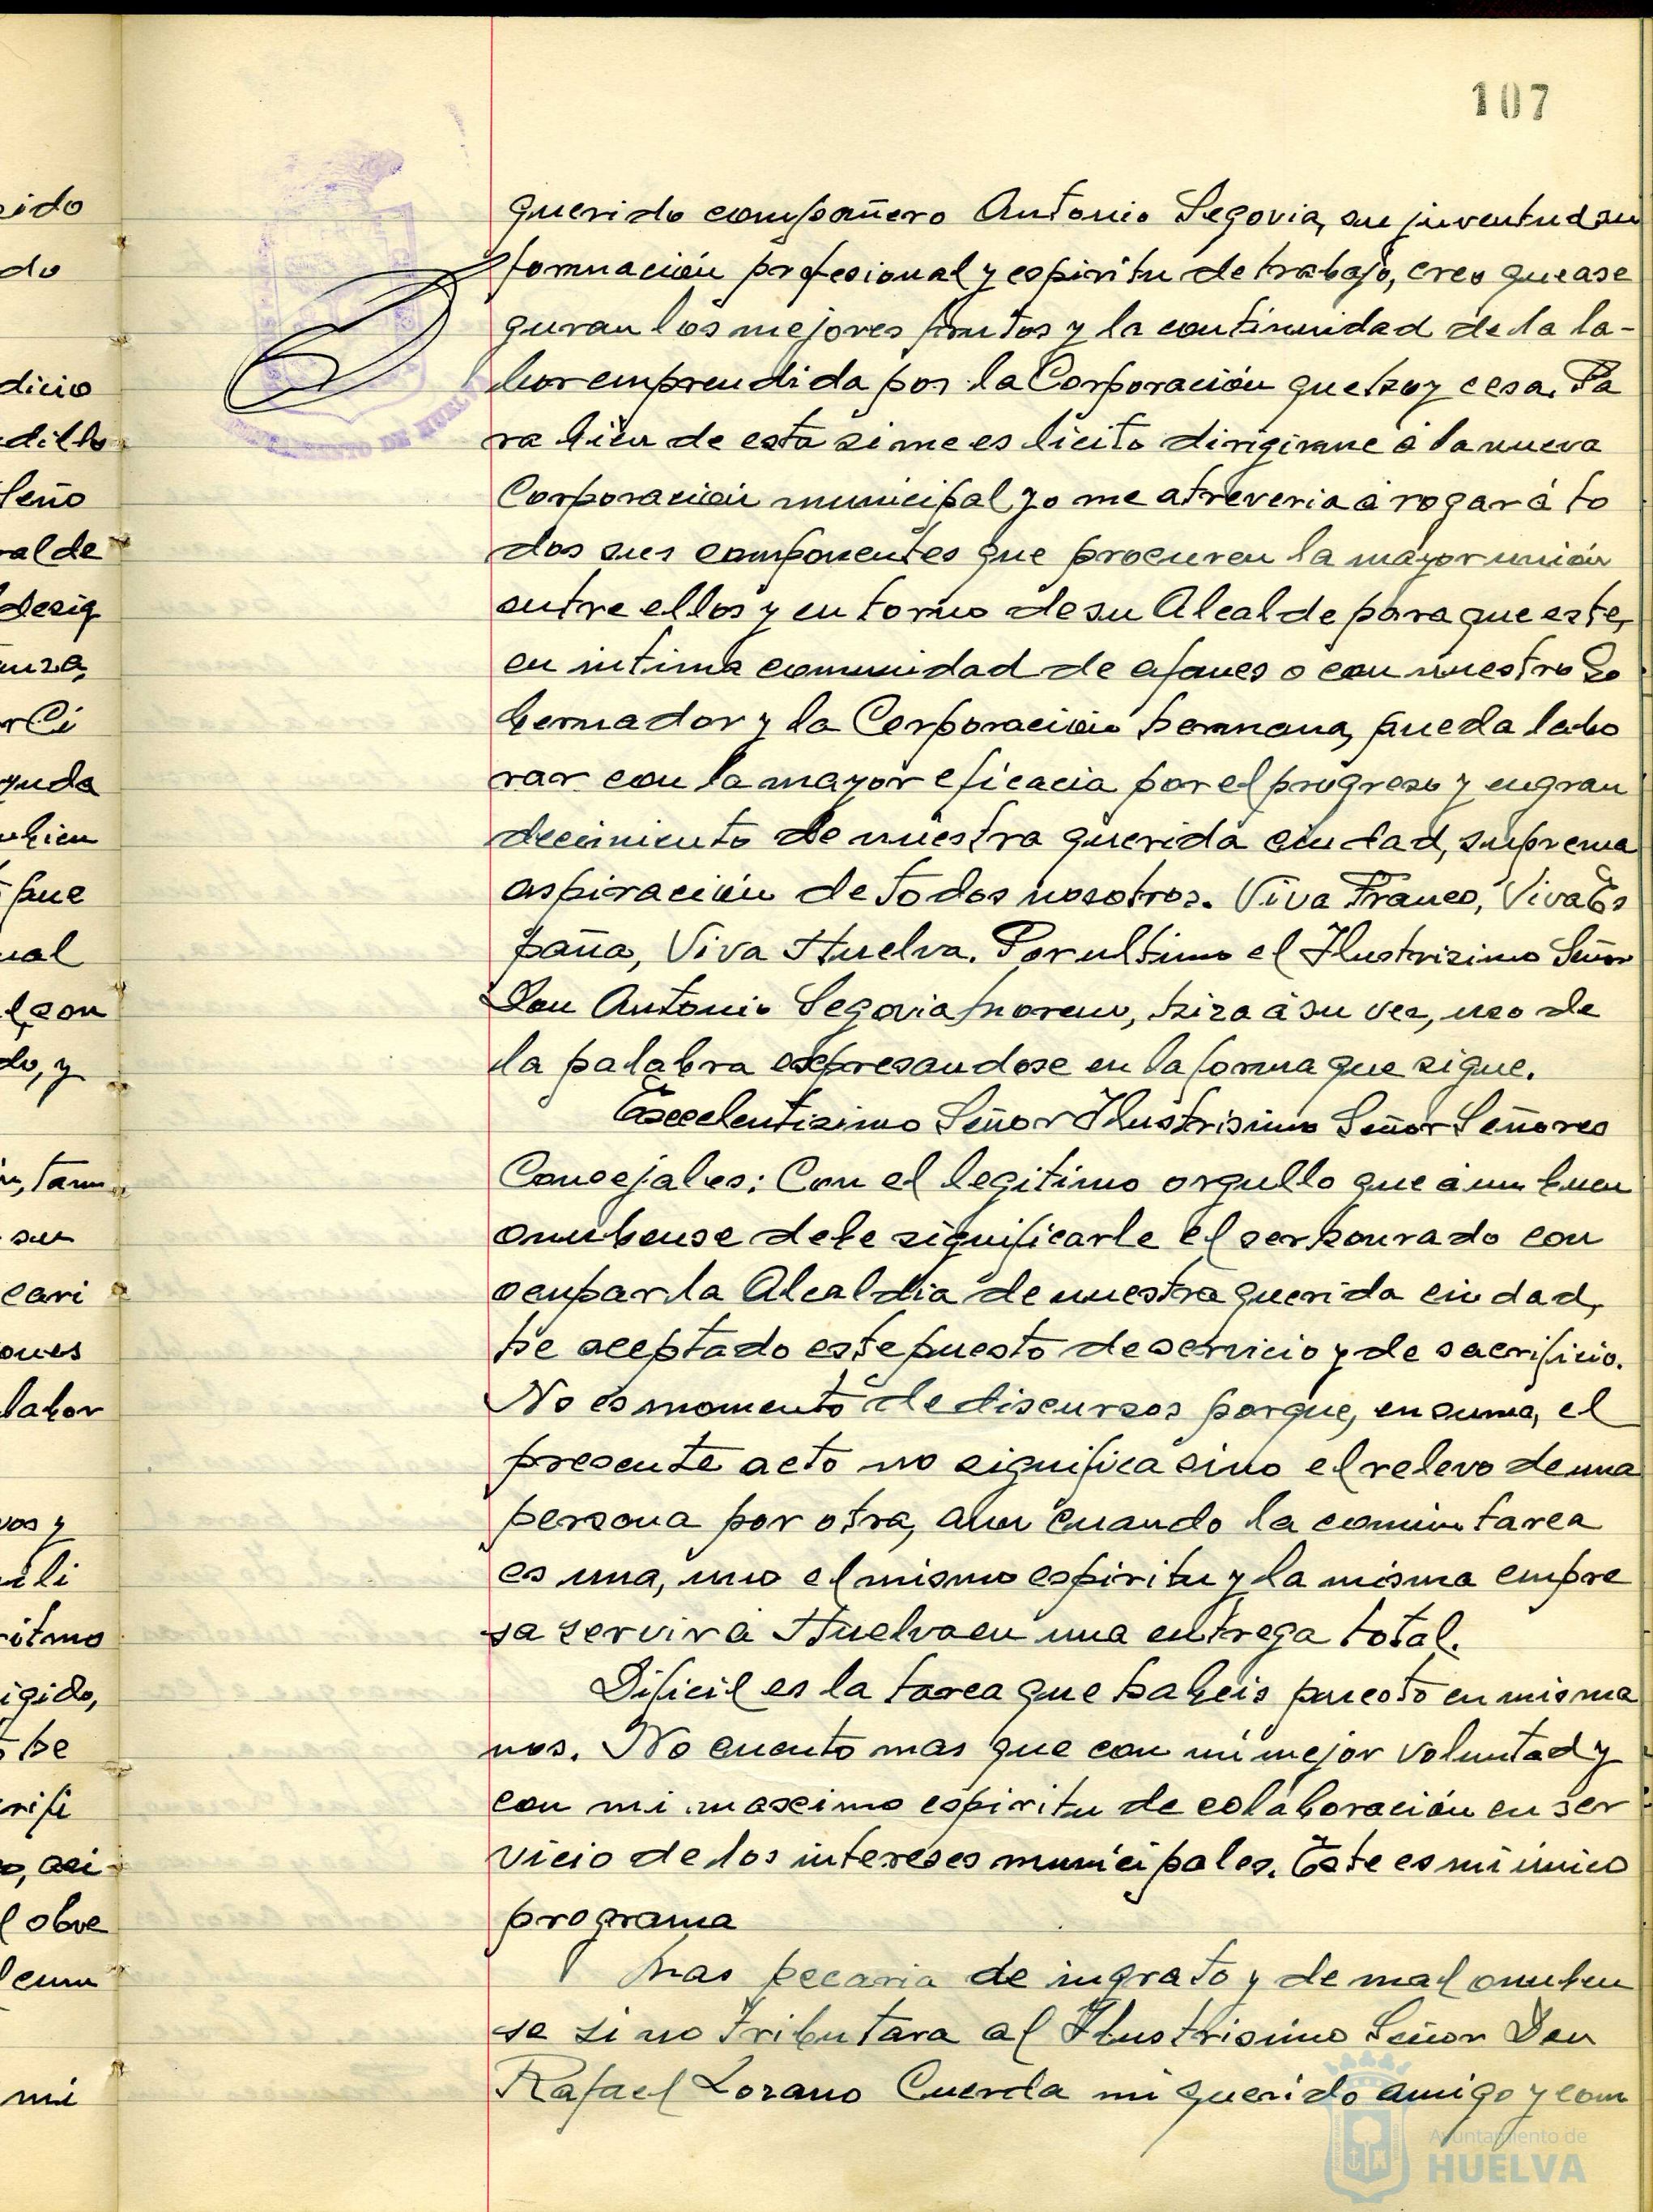 107
querido compañero Antonio Segovia, su juventud su
formación profesional y espiritu de trabajo, creo que ase
guran los mejores frutos y la continuidad de la la-
bor emprendida por la Corporación que hoy cesa. Pa
ra bien de esta si me es licito dirigirme á la nueva
Corporación municipal yo me atreveria á rogar á to
dos sus componentes que procuren la mayor unión
entre ellos y en torno de su Alcalde para que este,
en intima comunidad de afanes o con nuestro Go
bernador y la Corporación hermana, pueda labo
rar con la mayor eficacia por el progreso y engran
decimiento de nuestra querida ciudad, suprema
aspiración de todos nosotros. Viva Franco, Viva Es
paña, Viva Huelva. Por ultimo el Ilustrisimo Señor
Don Antonio Segovia Moreno, hizo á su vez, uso de
la palabra expresandose en la forma que sigue.
Excelentisimo Señor Ilustrisimo Señor Señores
Concejales: Con el legitimo orgullo que á un buen
onubense debe significarle el ser honrado con
ocupar la Alcaldia de nuestra querida ciudad,
he aceptado este puesto de servicio y de sacrificio.
No es momento de discursos porque, en suma, el
presente acto no significa sino el relevo de una
persona por otra, aun cuando la comun tarea
es una, uno el mismo espiritu y la misma empre
sa servir á Huelva en una entrega total.
Dificil es la tarea que habeis puesto en mis ma
nos. No cuento mas que con mi mejor voluntad y
con mi maximo espiritu de colaboración en ser
vicio de los intereses municipales. Este es mi único
programa
Mas pecaria de ingrato y de mal onuben
se si no tributara al Ilustrisimo Señor Don
Rafael Lozano Cuerda mi querido amigo y com
dicio
dillo
ral de
desig
r Ci
yuda
pue
do, y
su
cari
labor
vos y
igido,
rifi
mi
DE HUELVA
Ayuntamiento de
HUELVA